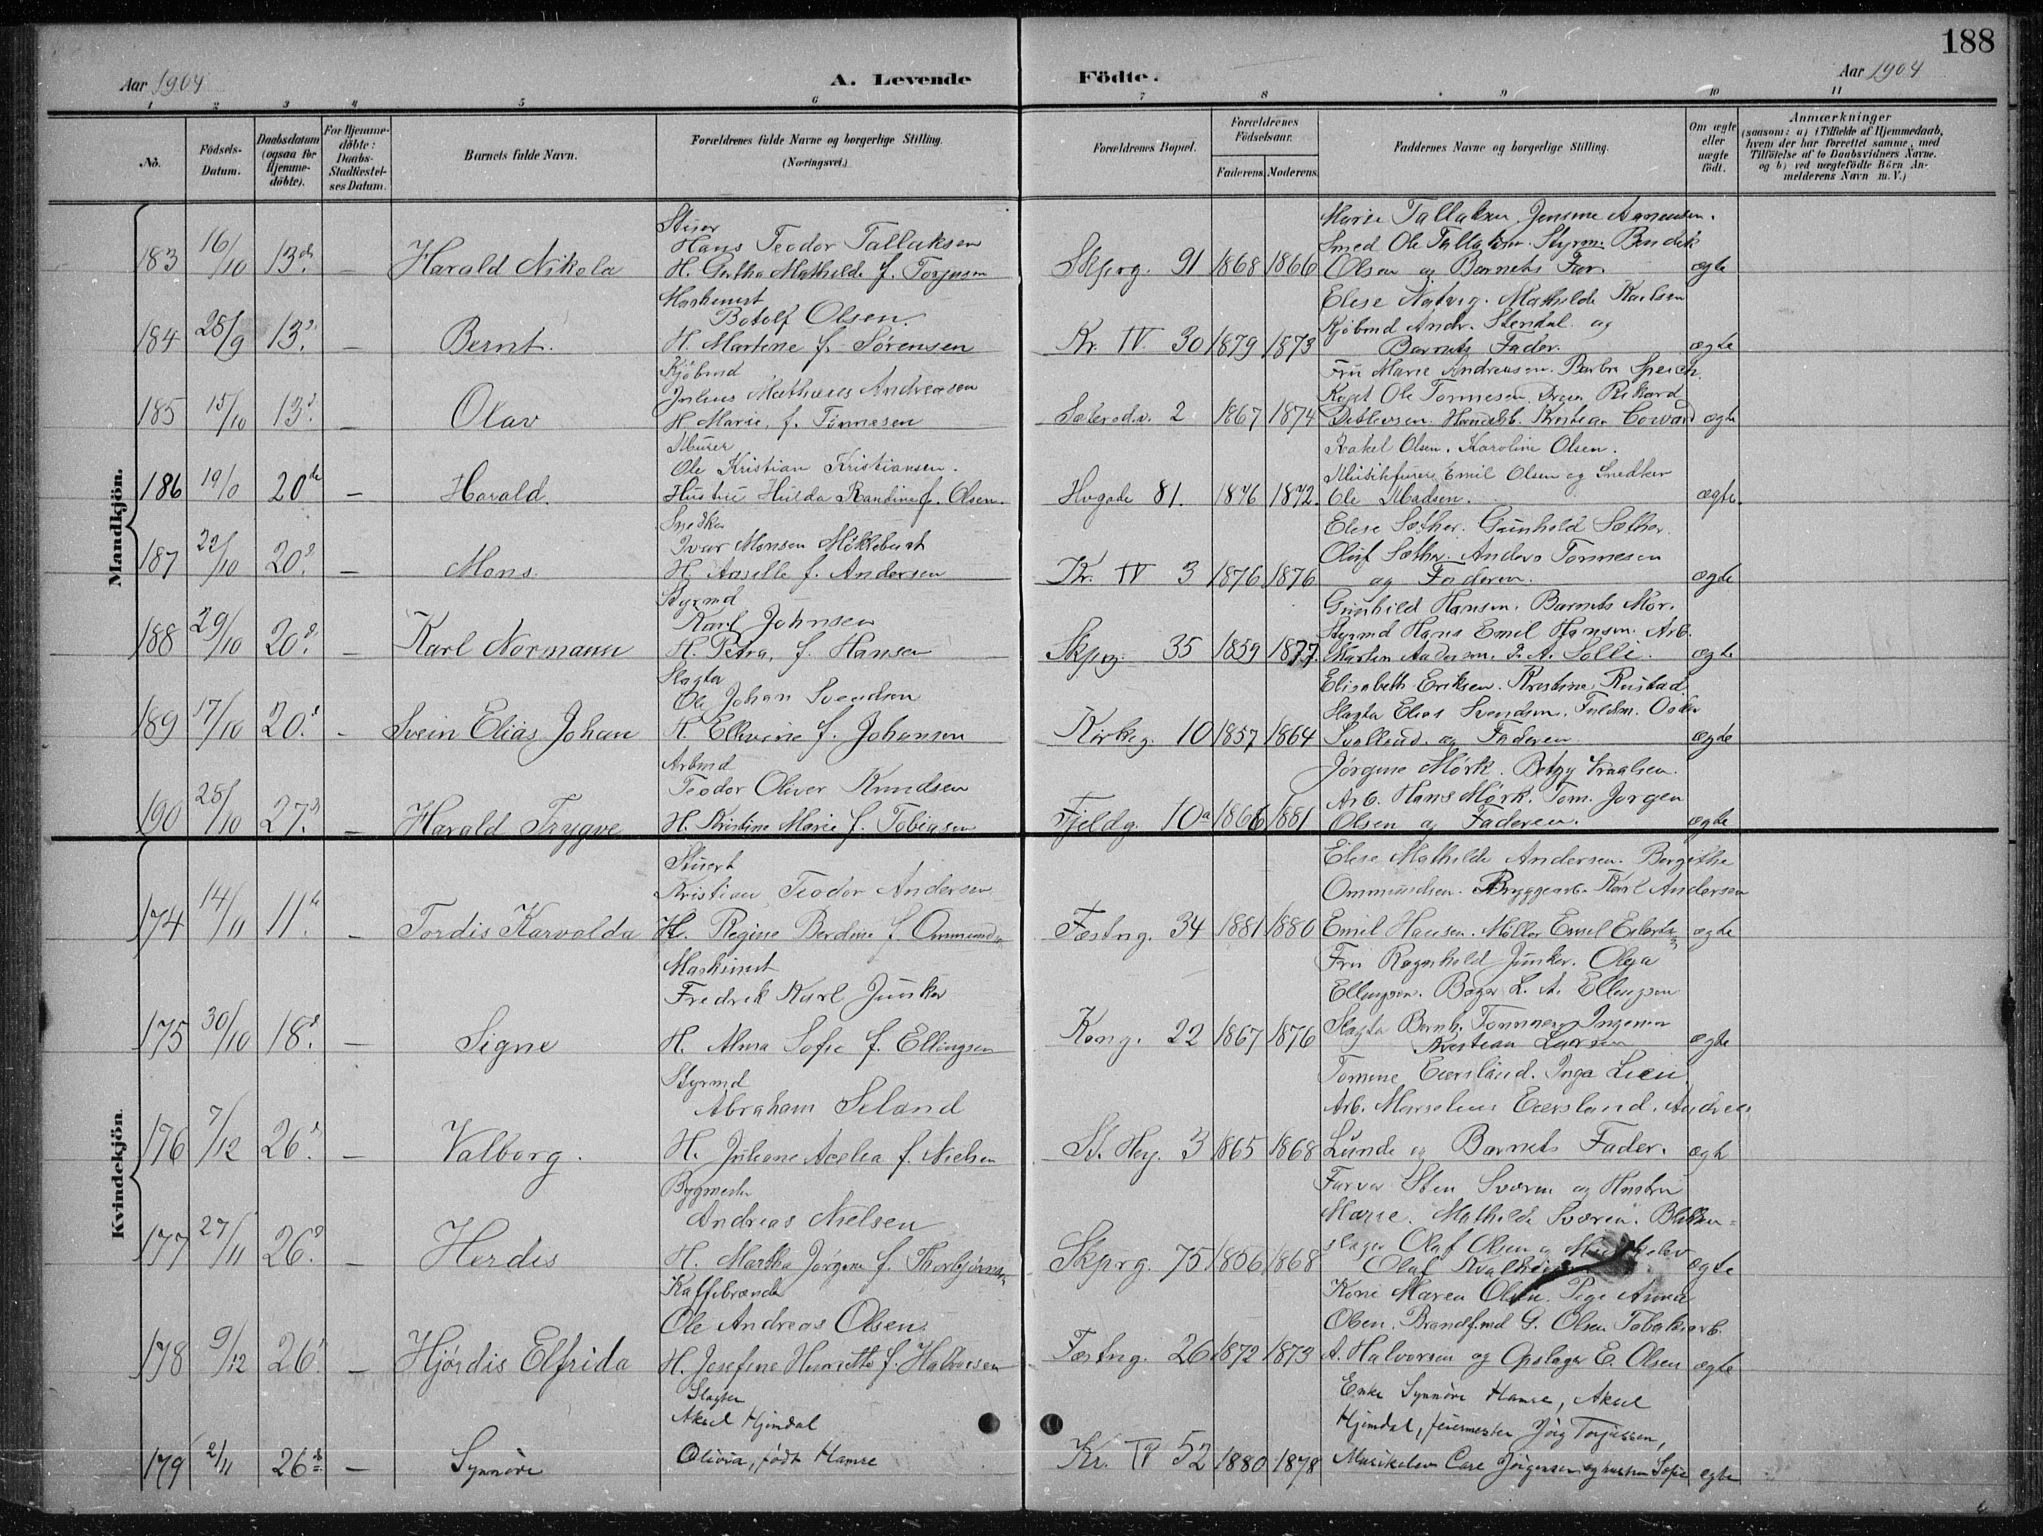 188
Aar 1904
A. Levende
Födte.
Aar 1904
1 2 3 4 5 6 7 8 9 10 11
No.
Födsels-
Datum.
Daabsdatum
(ogsaa for
Hjemme-
döbte).
For Hjemme-
döbte:
Daabs-
Stadfæstel-
ses Datum.
Barnets fulde Navn.
Forældrenes fulde Navne og borgerlige Stilling.
(Næringsvei.)
Forældrenes Bopæl.
Forældrenes
Födselsaar.
Faderens. Moderens.
Faddernes Navne og borgerlige Stilling.
Om ægte
eller
uægte
födt.
Anmærkninger
(saasom: a) i Tilfælde af Hjemmedaab,
hvem der har forrettet samme, med
Tilföielse af to Daabsvidners Navne.
og b) ved uægtefödte Börn An-
melderens Navn m. V.)
Mandkjön.
183 16/10 13de — Harald Nikolai
Stuer
Hans Teodor Tallaksen
H. Gertha Mathilde f. Torjusen
Skprg. 91 1868 1866
Marie Tallaksen Jensine Asmensen.
Smed Ole Tallaksen. Styrm. Bendik
Olsen og Barnets Far. ægte
184 28/9 13d. — Bernt.
Maskinist
Botolf Olsen.
H. Martine f. Sörensen
Kr. IV 30 1879 1873
Elise Natvig. Mathilde Karlsen
Kjöbmd Andr. Stendal og
Barnets Fader. ægte
185 15/10 13d. — Olav
Kjöbmd
Julius Mathæus Andreasen
H Marie, f. Tönnesen
Sæterodv. 2 1867 1874
Fru Marie Andreasen. Barbra Speich.
Kapt Ole Tönnesen. Rikard
Detlevsen. Kristian ægte
186 19/0 20de — Harald.
Murer
Ole Kristian Kristiansen.
Hustru Hulda Randine f. Olsen.
Hvgade 81. 1876 1872.
Rakel Olsen. Karoline Olsen.
Musikfurer Emil Olsen og Snedker
Ole Madsen. ægte.
187 22/10 20d. — Mons.
Snedker
Ivar Monsen Mökleburst
H. Aaselle f. Andersen
Kr. IV 3 1876 1876
Elise Sæther. Gunhild Sæther.
Oluf Sæther. Anders Tönnesen
og Faderen. ægte
188 29/10 20d. — Karl Normann
Styrmd
Karl Johnsen
H. Petra, f. Hansen
Skprg. 35 1859 1877
Gunhild Hansen. Barnets Mor.
Styrmd Hans Emil Hansen. Arb.
Martin Andersen. P. A. Solli. ægte
189 17/10 20d. - Svein Elias Johan
Slagter
Ole Johan Svendsen
H. Ellevine f. Johansen
Kirkeg. 10 1857 1864
Elisabeth Eriksen. Kristine Rustad.
Slagter Elias Svendsen.
og Faderen ægte
190 28/10 27d. — Harald Trygve
Arbmd
Teodor Oliver Knudsen
H. Kristine Marie f. Tobiasen
Fjeldg. 10a 1866 1881
Jörgine Mörk. Betzy Iraalsen.
Arb. Hans Mörk. Töm. Jörgen
Olsen og Faderen. ægte
Kvindekjön.
174 14/11 11te. — Tordis Karvalda
Stuert
Kristian Teodor Andersen
H. Regine Berdine f. Ommunds
Fæstng. 34 1881 1880
Elise Mathilde Andersen. Bergithe
Ommundsen. Bryggearb. Karl Andersen
Emil Hansen. Möller Emil ægte
175 30/10 18d. — Signe
Maskinist
Fredrik Karl Junker
H. Alma Sofie f. Ellingsen
Kong. 22 1867 1876
Fru Ragnhild Junker. Olga
Ellingsen. Bager L. A. Ellingsen
Slagter Bernh. Tönnnes Ingeniör
Kristian Larsen ægte
176 7/12 26d. — Valborg.
Styrmd
Abraham Seland
H. Juliane f. Nielsen
St. Hey. 3 1865 1868
Tomine Eversland. Inga Lien
Arb. Marselius Eversland. Andreas
Lunde og Barnets Fader. ægte
177 27/11 26d. — Herdis
Bygmester
Andreas Nielsen
H. Martha Jörgine f. Thorbjörnsen
Skprg. 75 1856 1868
Farver Sten Sværen og Hustru
Marie. Mathilde Sværen. Blikken-
slager Olaf Olsen og
Olaf ægte
178 9/12 26d. — Hjördis Elfrida
Kaffebrænder
Ole Andreas Olsen
H. Josefine Henriette f. Halvorsen
Fæstng. 26 1872 1873
Kone Maren Olsen. Pige Anna
Olsen. Brandf.md G. Olsen Tobaksarb.
A. Halvorsen og Opslager E. Olsen ægte
179 2/11 26de — Synnöve
Slagter
Aksel Hjimdal
Olivia, födt Hamre
Kr. IV 52 1880 1878
Enke Synnöve Hamre, Aksel
Hjimdal, feiermester Jörg Torjussen,
Musikelev Carl Jörgensen og hustru Sofie ægte